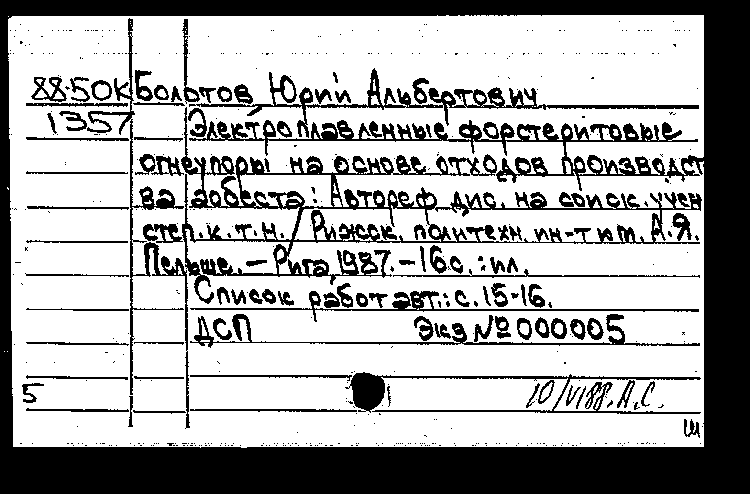 88-50К Болотов Юрий Альбертович
1357 Электроплавленные форстеритовые
огнеупоры на основе отходов производст
ва асбеста: Автореф. дис. на соиск. учен
степ. к.т.н. / Рижск. политехн. ин-т им. А.Я.
Пельше. – Рига, 1987. – 16с. : ил.
Список работ авт.: с. 15-16.
ДСП Экз № 000005
5 10/VI88. А.С.
Ш